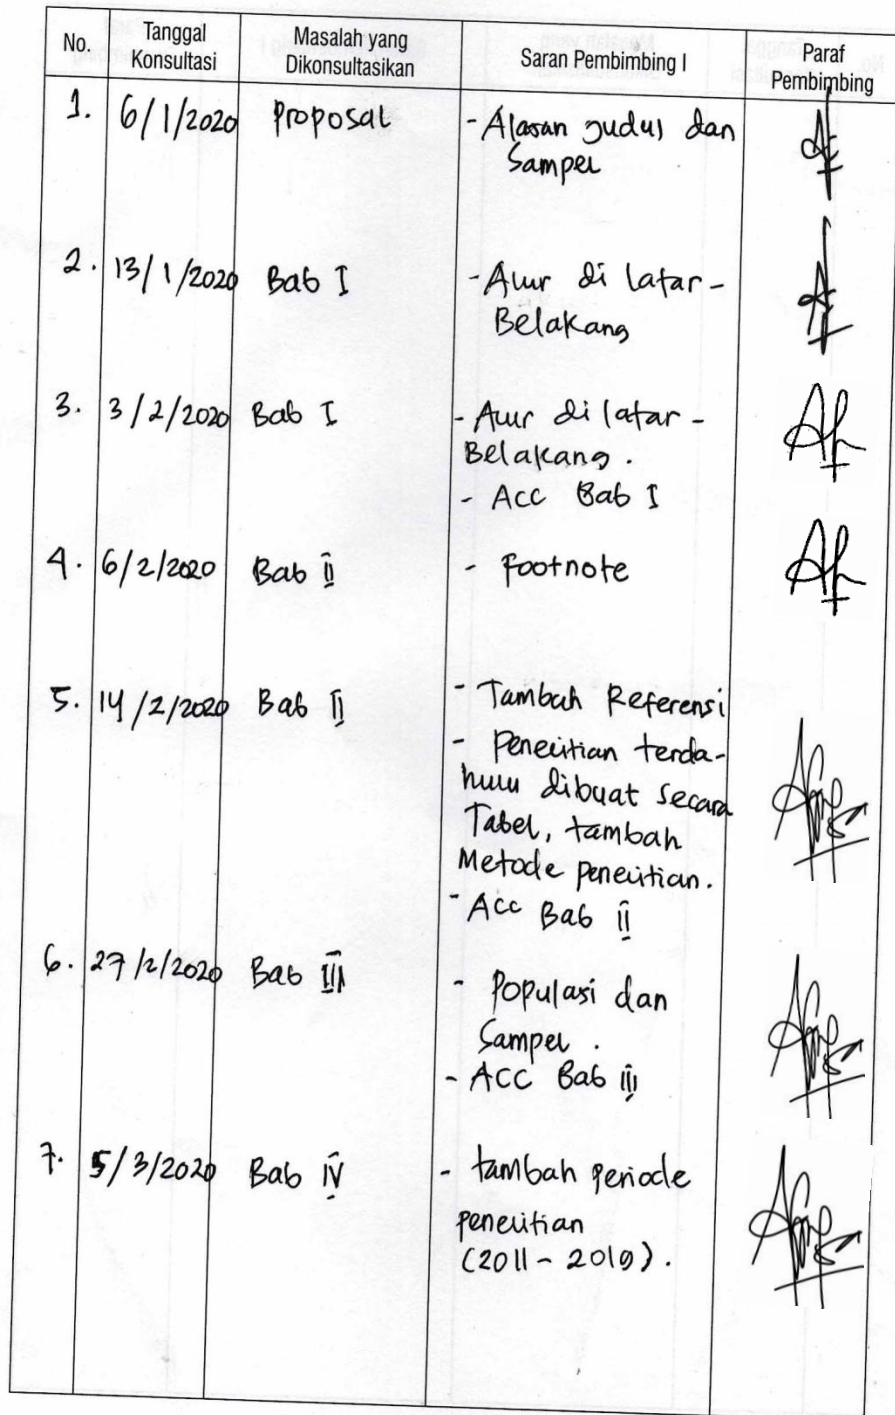 No. Tanggal Konsultasi Masalah yang Dikonsultasikan Saran Pembimbing I Paraf Pembimbing
1. 6/1/2020 Proposal - Alasan Judul dan
Sampel
2. 13/1/2020 Bab I - Alur di latar-
Belakang
3. 3/2/2020 Bab I - Alur di latar-
Belakang.
- Acc Bab I
4. 6/2/2020 Bab II - Footnote
5. 14/2/2020 Bab II - Tambah Referensi
- Penelitian terda-
hulu dibuat secara
Tabel, tambah
Metode penelitian.
- Acc Bab II
6. 27/2/2020 Bab III - Populasi dan
Sampel.
- ACC Bab III
7. 5/3/2020 Bab IV - tambah periode
penelitian
(2011 - 2019).